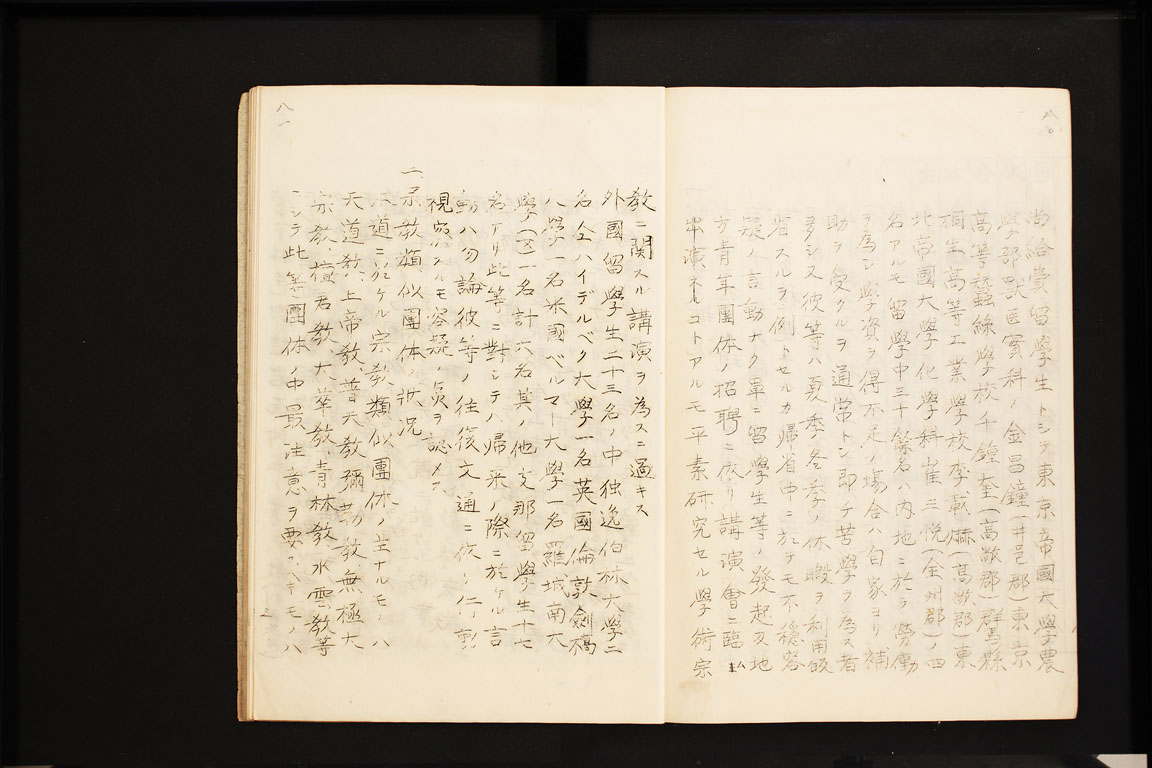 八〇
尚給費留學生トシテ東京帝國大學農
學部獸医實科ノ金昌鐘(井邑郡)東京
高等蠶絲學校千鐘奎(高敞郡)群馬縣
桐生高等工業學校李載爀(高敞郡)東
北帝國大學化學科崔三悅(全州郡)ノ四
名アルモ留學中三十餘名ハ内地ニ於テ勞働
ヲ為シ學資ヲ得不足ノ場合ハ自家ヨリ補
助ヲ受クルヲ通常トシ即チ苦學ヲ為ス者
多シ又彼等ハ夏季冬季ノ休暇ヲ利用皈
省スルヲ例トセルカ帰省中ニ於テモ不穏容
疑ノ言動ナク單ニ留學生等ノ發起又地
方青年團体ノ招聘ニ依リ講演會ニ臨ミ
出演スルコトアルモ平素研究セル學術宗
八一
教ニ関スル講演ヲ為スニ過キス
外國留學生二十三名ノ中独逸伯林大學二
名仝ハイデルベク大學一名英國倫敦劍橋
大學一名米國ベルマー大學一名羅城南大
學(医)一名計六名其ノ他支那留學生十七
名アリ此等ニ對シテノ帰来ノ際ニ於ケル言
動ハ勿論彼等ノ往復文通ニ依リ行動
視察スルモ容疑ノ点ヲ認メス
二、宗教類似團体ノ狀况
本道ニ於ケル宗教類似團体ノ主ナルモノハ
天道教、上帝教、普天教彌勒教無極大
宗教檀君教大華教、青林教水雲教等
ニシテ此等團体ノ中最注意ヲ要スヘキモノハ